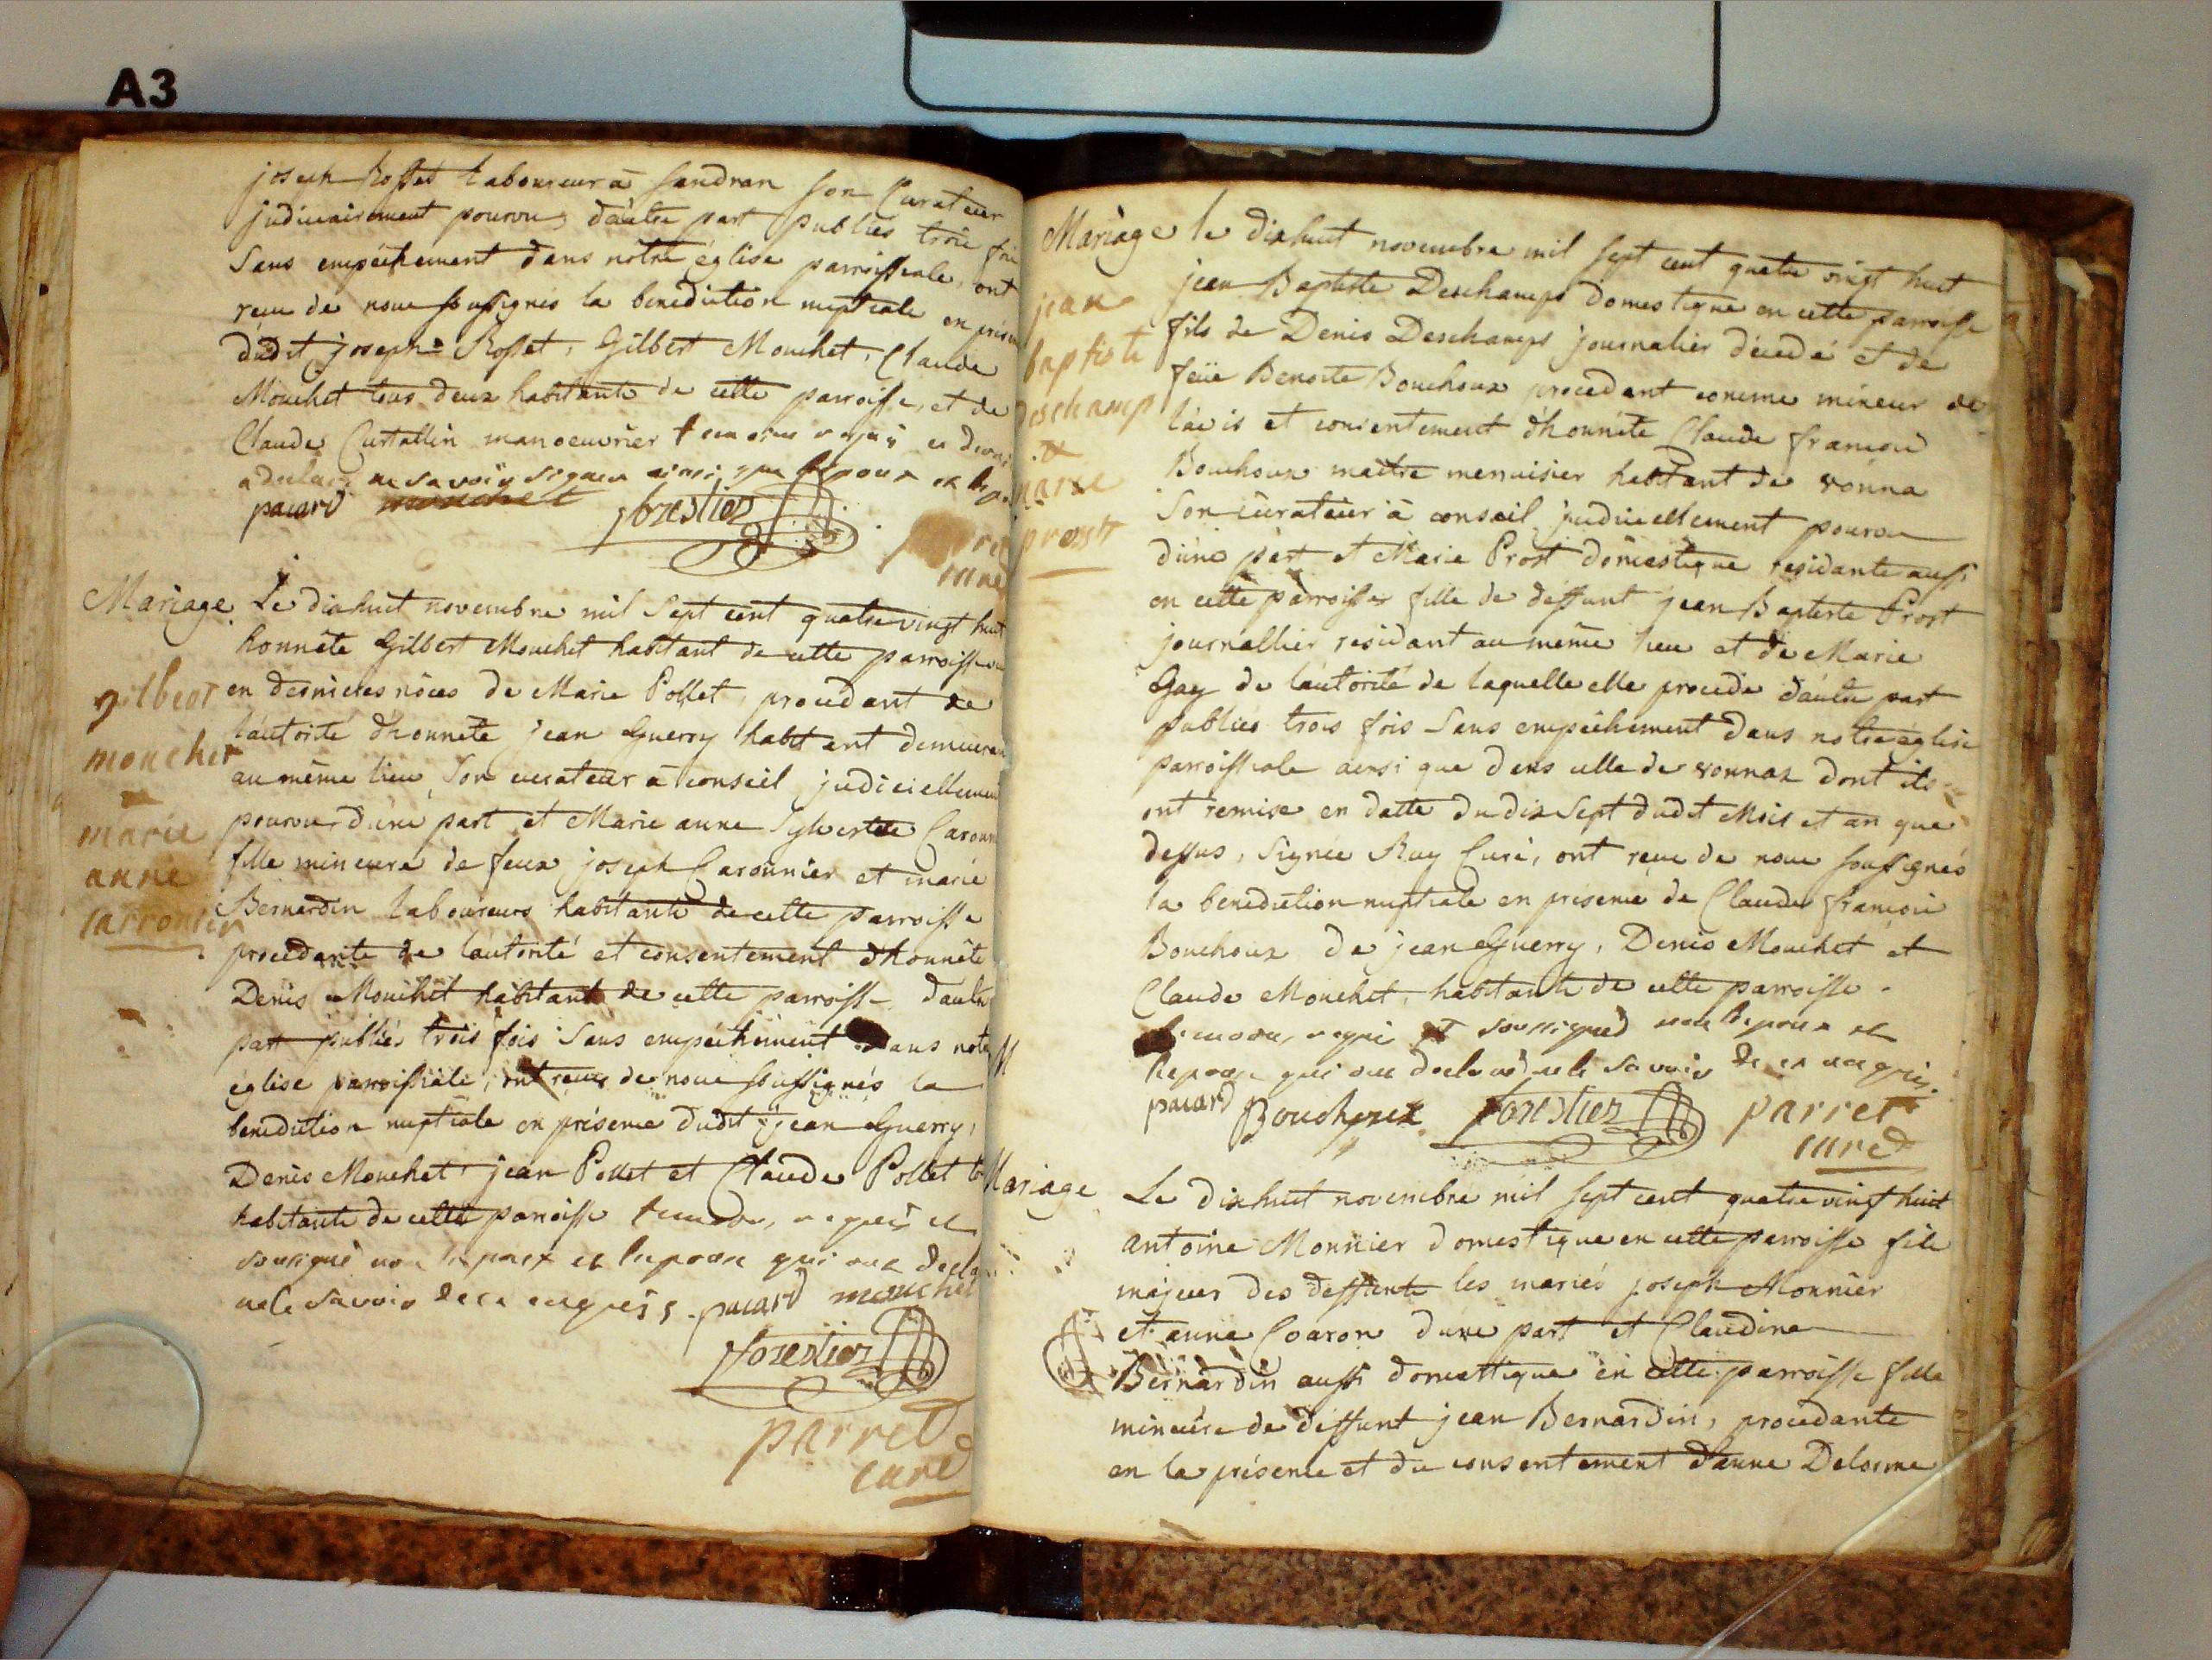 A3
joseph Rosset Laboureur à Sandran son Curateur
judiciairement pourvu, d'autre part publiés trois fois
sans empéchement dans nôtre église parroissiale, ont
reçu de nous soussignés la benediction nuptiale en présen
dudit joseph Rosset, Gilbert Mouchet, Claude
Mouchet tous deux habitants de cette parroisse, et de
Claude Curtallin manoeuvrier temoins requis
a declaré ne savoir signer ainsi que l'epoux et
pacard mouchet forestier
curé
Mariage. Le dixhuit novembre mil sept cent quatrevingt huit
honnête Gilbert Mouchet habitant de cette parroisse
gilbert
mouchet
et
marie
anne
carronier
en dernieres nôces de Marie Pollet, procedant de
l'autorité d'honnête jean Guerry habitant demeuran
au même lieu, son curateur à conseil judiciellement
pourvu d'une part et Marie anne Sylvestre Caronn
fille mineure de feux joseph Caronnier et marie
Bernardin Laboureurs habitants de cette parroisse
procedante de l'autorité et consentement d'honnête
Denis Mouchet habitant de cette parroisse d'autre
part publiés trois fois sans empéchement dans notre
église parroissiale, ont reçu de nous soussignés la
benediction nuptiale en présence dudit jean Guerry,
Denis Mouchet jean Pollet et Claude Pollet
habitants de cette parroisse temoins, requis et
soussigné non l'epoux et l'epouse qui ont decla
ne le savoir de ce enquis. pacard mouchet
forestier
parret
curé
Mariage le dixhuit novembre mil sept cent quatre vingt huit
jean
baptiste
deschamp
et
marie
prost
jean Baptiste Deschamps domestique en cette parroisse
fils de Denis Deschamps journalier décedé et de
feüe Benoite Bouchoux procedant comme mineur de
l'avis et consentement d'honnête Claude françois
Bouchoux maitre menuisier habitant de vonna
son curateur à conseil judiciellement pourvu
d'une part et Marie Prost domestique residante aussi
en cette parroisse fille de deffunt jean Baptiste Prost
journallier residant au même lieu et de Marie
Gay de l'autorité de laquelle elle procede d'autre part
publiés trois fois sans empéchement dans notre église
parroissiale ainsi que dans celle de vonnas dont ils
ont remise en datte du dix sept dudit Mois et an que
dessus, signée Ruy Curé, ont reçu de nous soussignés
la benediction nuptiale en présence de Claude françois
Bouchoux de jean Guerry, Denis Mouchet et
Claude Mouchet, habitants de cette parroisse.
temoins, requis et soussigned non l'epoux et
l'epouse qui ont declared ne le savoir de ce enquis.
pacard Bouchoux forestier parret
curé
Mariage Le dixhuit novembre mil sept cent quatrevingt huit
antoine Monnier domestique en cette parroisse fils
majeur des deffunts les mariés joseph Monnier
et anne Coaron d'une part et Claudine
Bernardin aussi domestique en cette parroisse fille
mineure de deffunt jean Bernardin, procedante
en la présence et du consentement d'anne Delorme